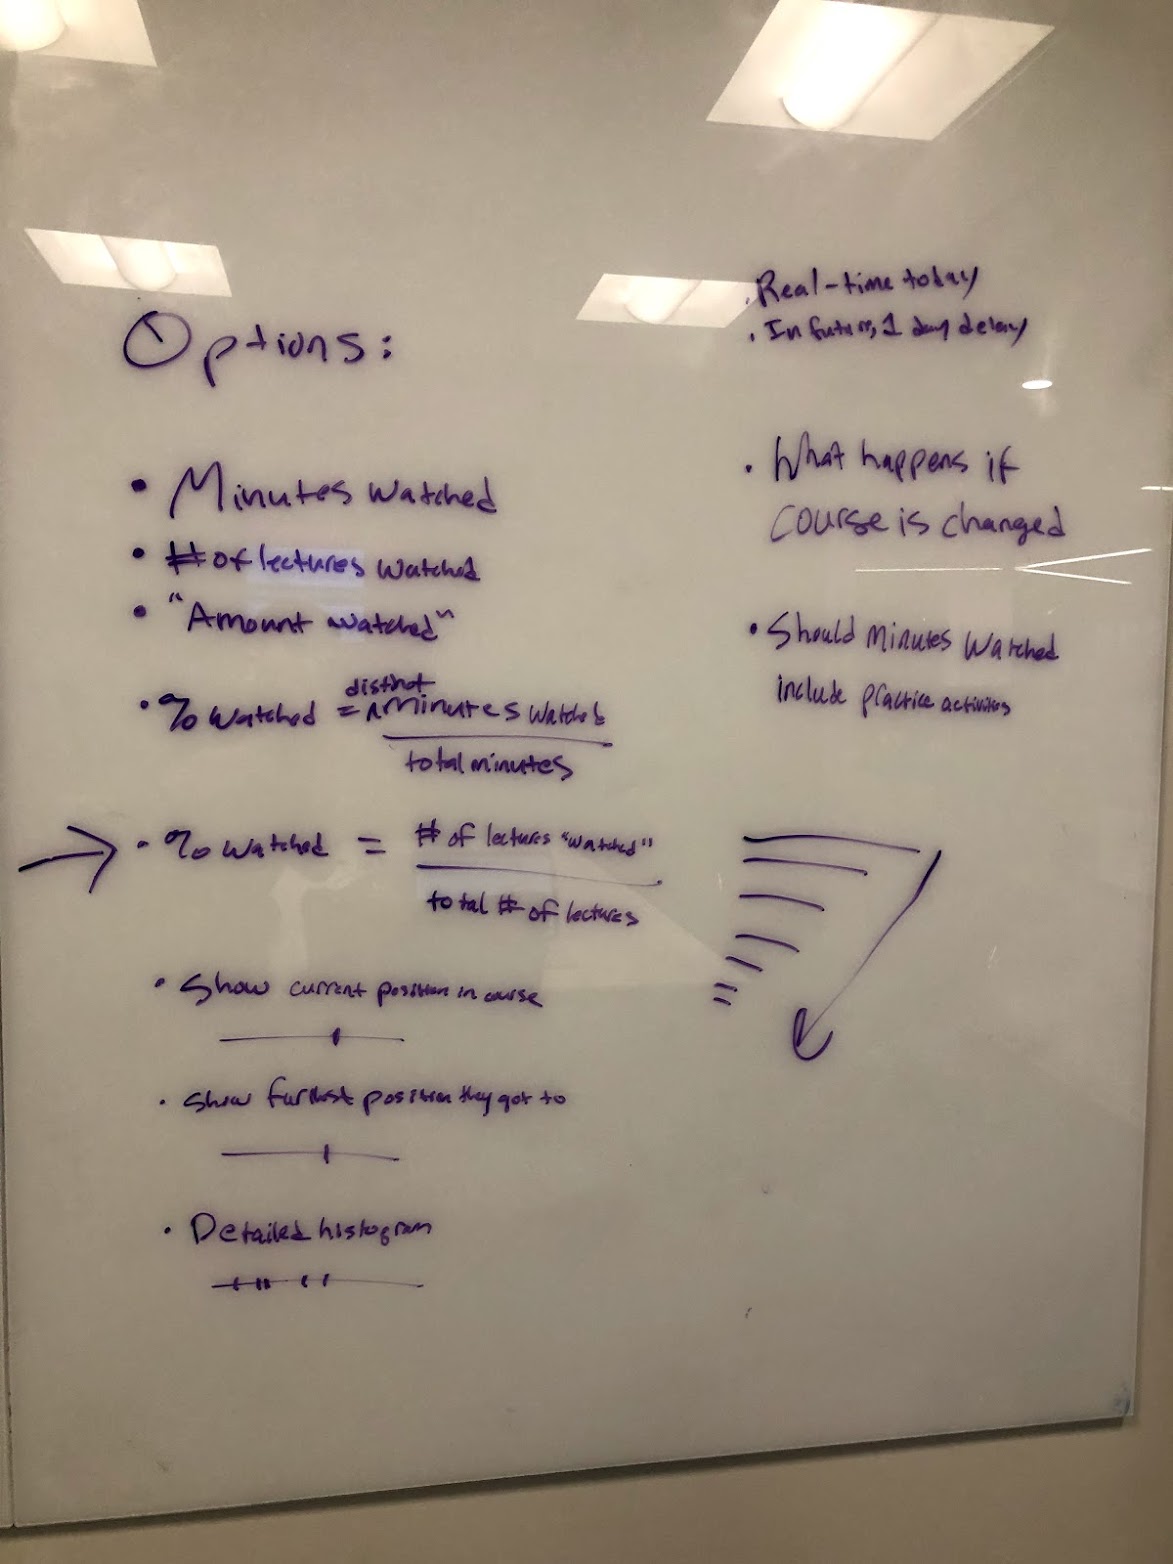 Options:
• Minutes watched
• # of lectures watched
• "Amount watched"
distinct
• % watched = ^ minutes watched
total minutes
→ • % watched = # of lectures "watched"
total # of lectures
• Show current position in course
• Show furthest position they got to
• Detailed histogram
• Real-time today
• In future, 1 day delay
• What happens if
course is changed
• Should minutes watched
include practice activities